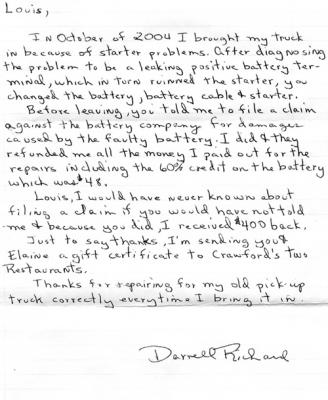 Louis,
In October of 2004 I brought my truck
in because of starter problems. After diagnosing
the problem to be a leaking positive battery ter-
minal, which in turn ruinned the starter, you
changed the battery, battery cable & starter.
Before leaving, you told me to file a claim
against the battery company for damages
caused by the faulty battery. I did & they
refunded me all the money I paid out for the
repairs including the 60% credit on the battery
which was $48.
Louis, I would have never known about
filing a claim if you would, have not told
me & because you did, I received $400 back.
Just to say thanks, I'm sending you &
Elaine a gift certificate to Crawford's two
Restaurants.
Thanks for repairing for my old pick-up
truck correctly everytime I bring it in.
Darrell Richard